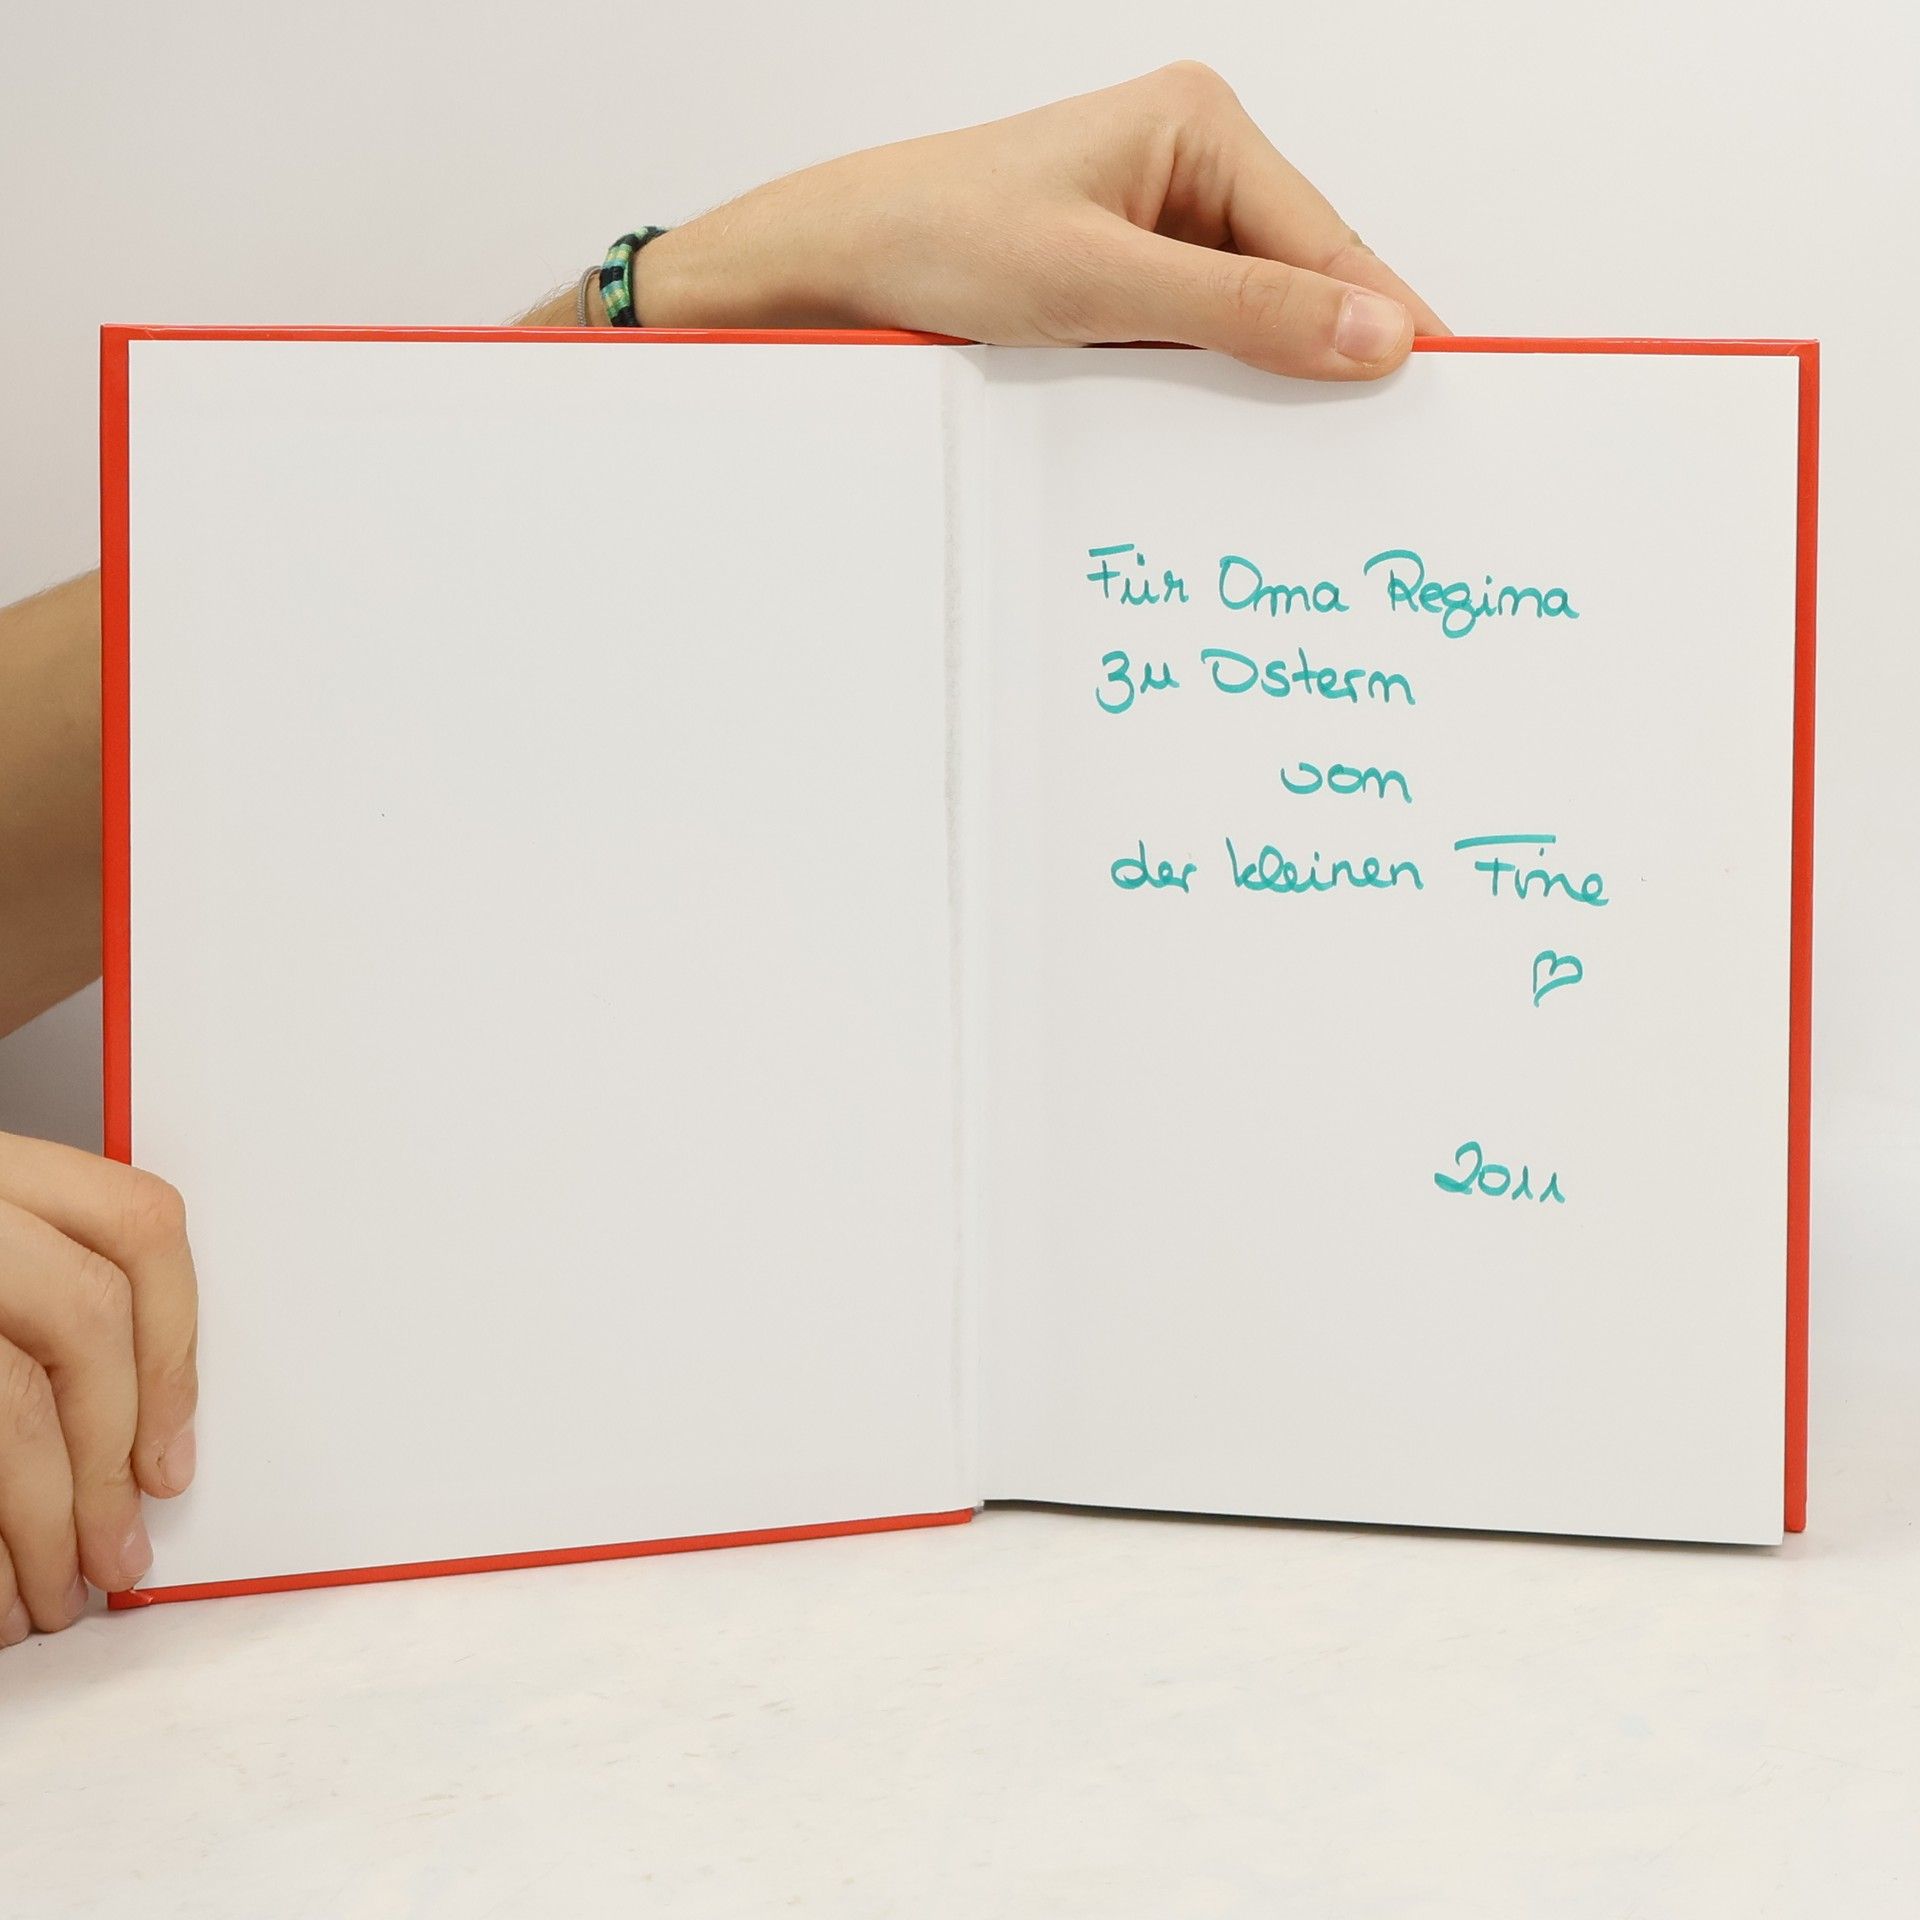 Für Oma Regina
zu Ostern
von
der kleinen Fine
♡
2011